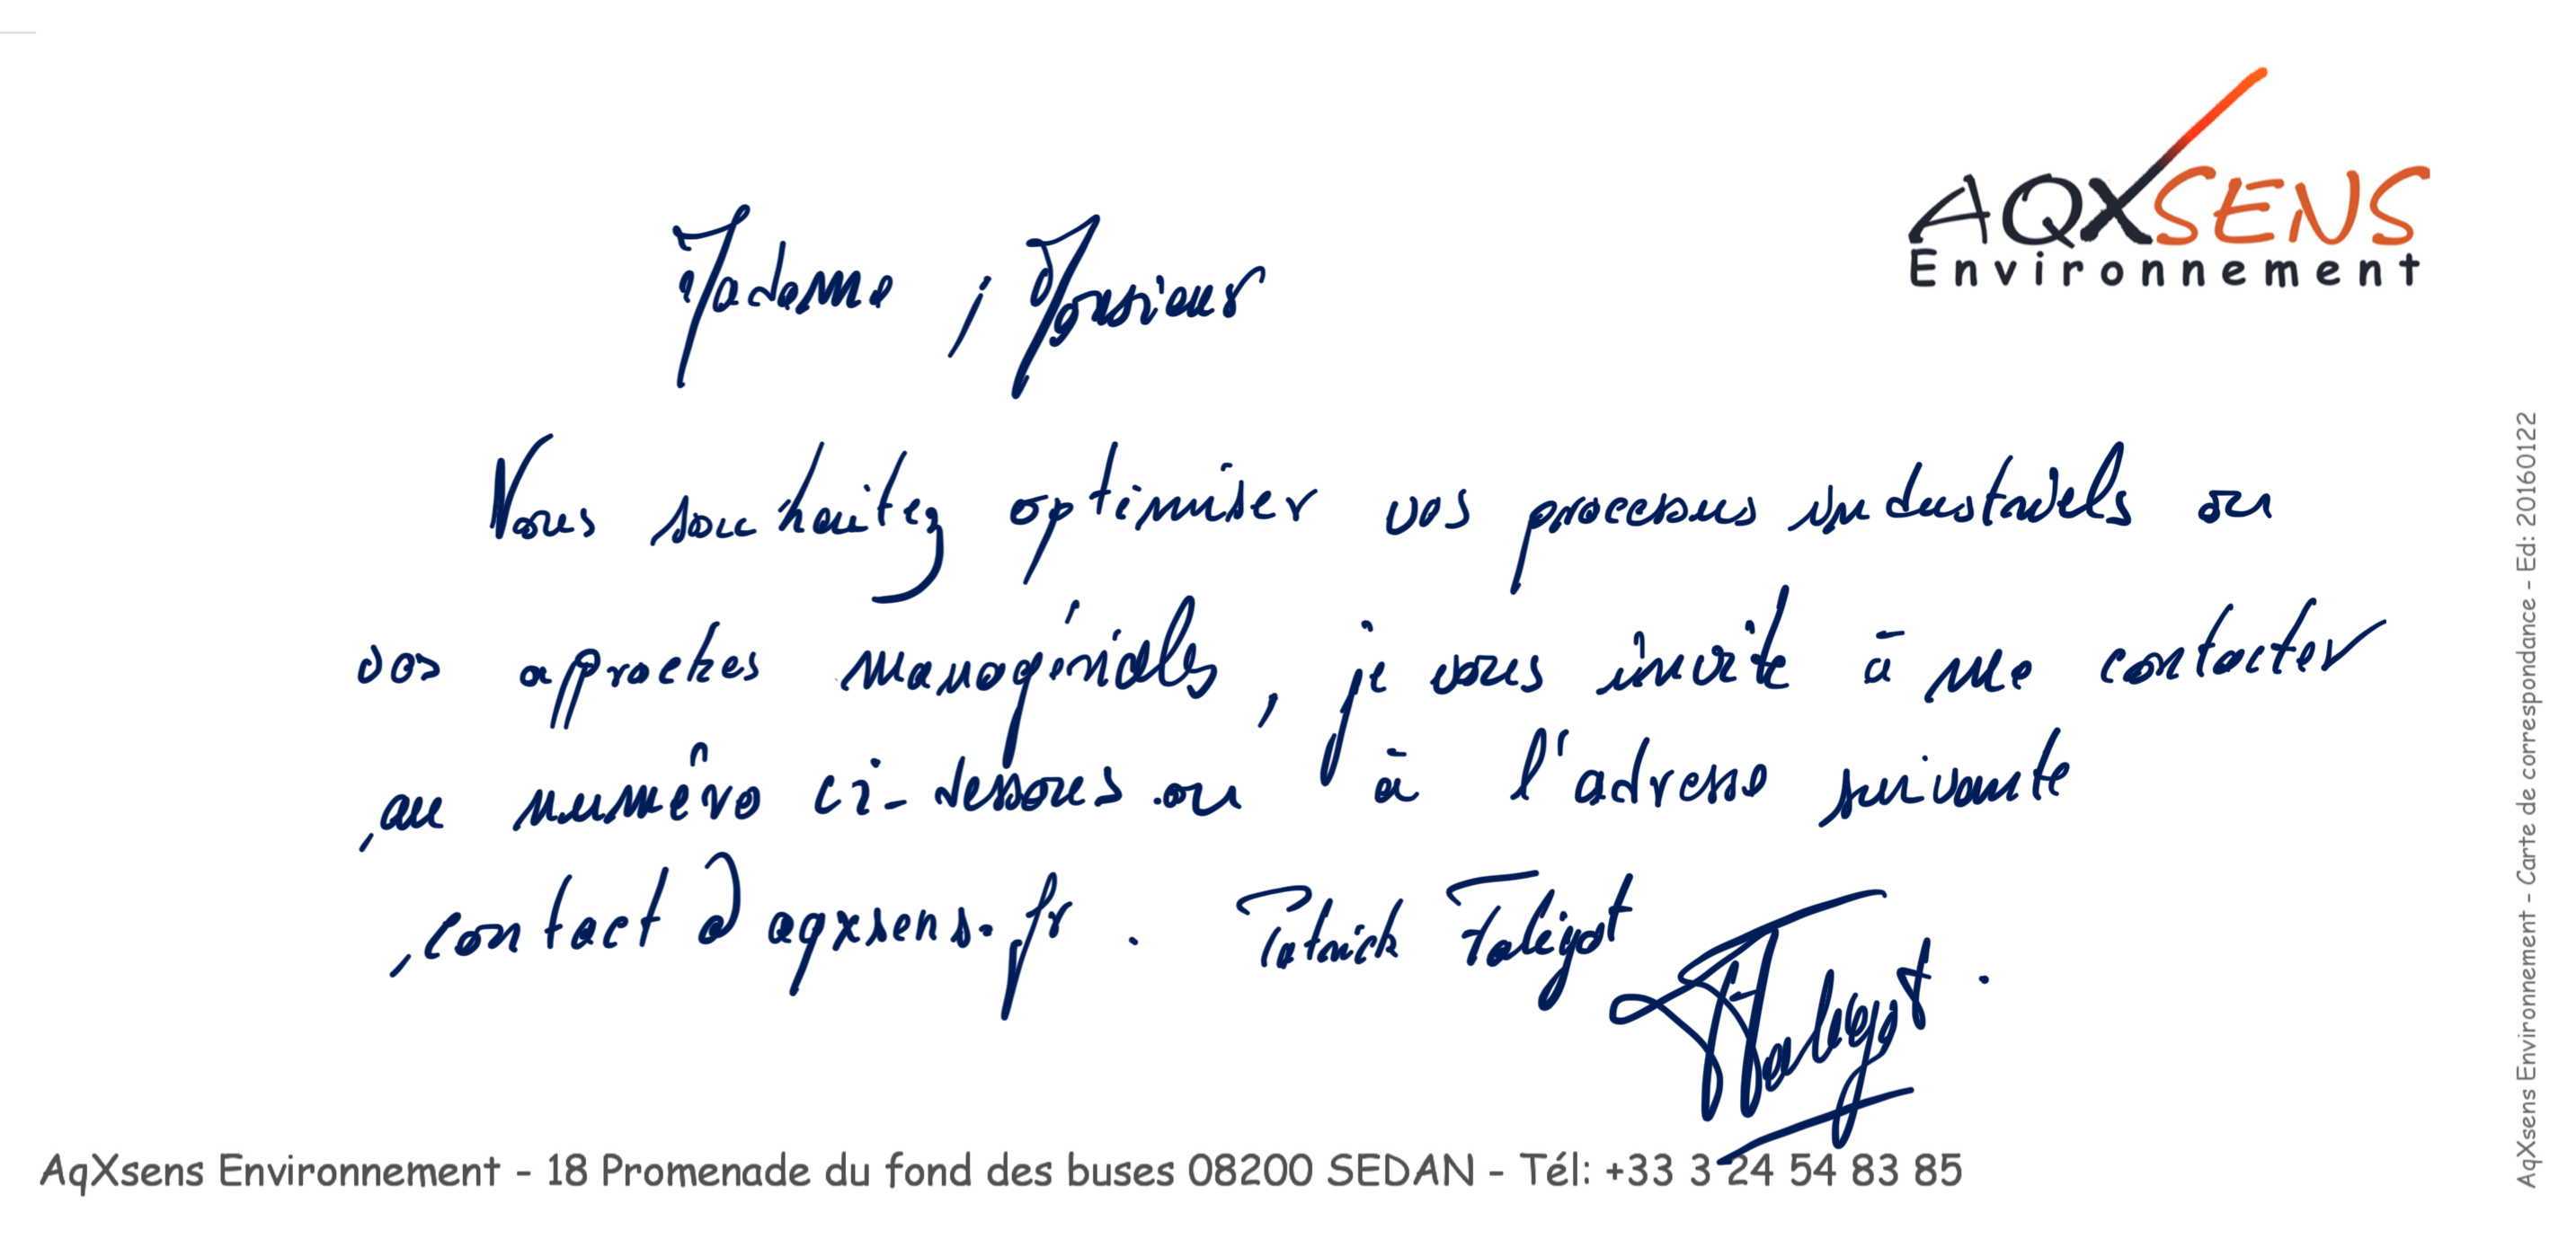 AQXSENS
Environnement
Madame, Monsieur
Vous souhaitez optimiser vos processus industriels ou
vos approches managériales, je vous invite à me contacter
au numéro ci-dessous ou à l'adresse suivante
contact@aqxsens.fr. Patrick Falégot
Falégot.
AqXsens Environnement - 18 Promenade du fond des buses 08200 SEDAN - Tél: +33 3 24 54 83 85
AqXsens Environnement - Carte de correspondance - Ed: 20160122